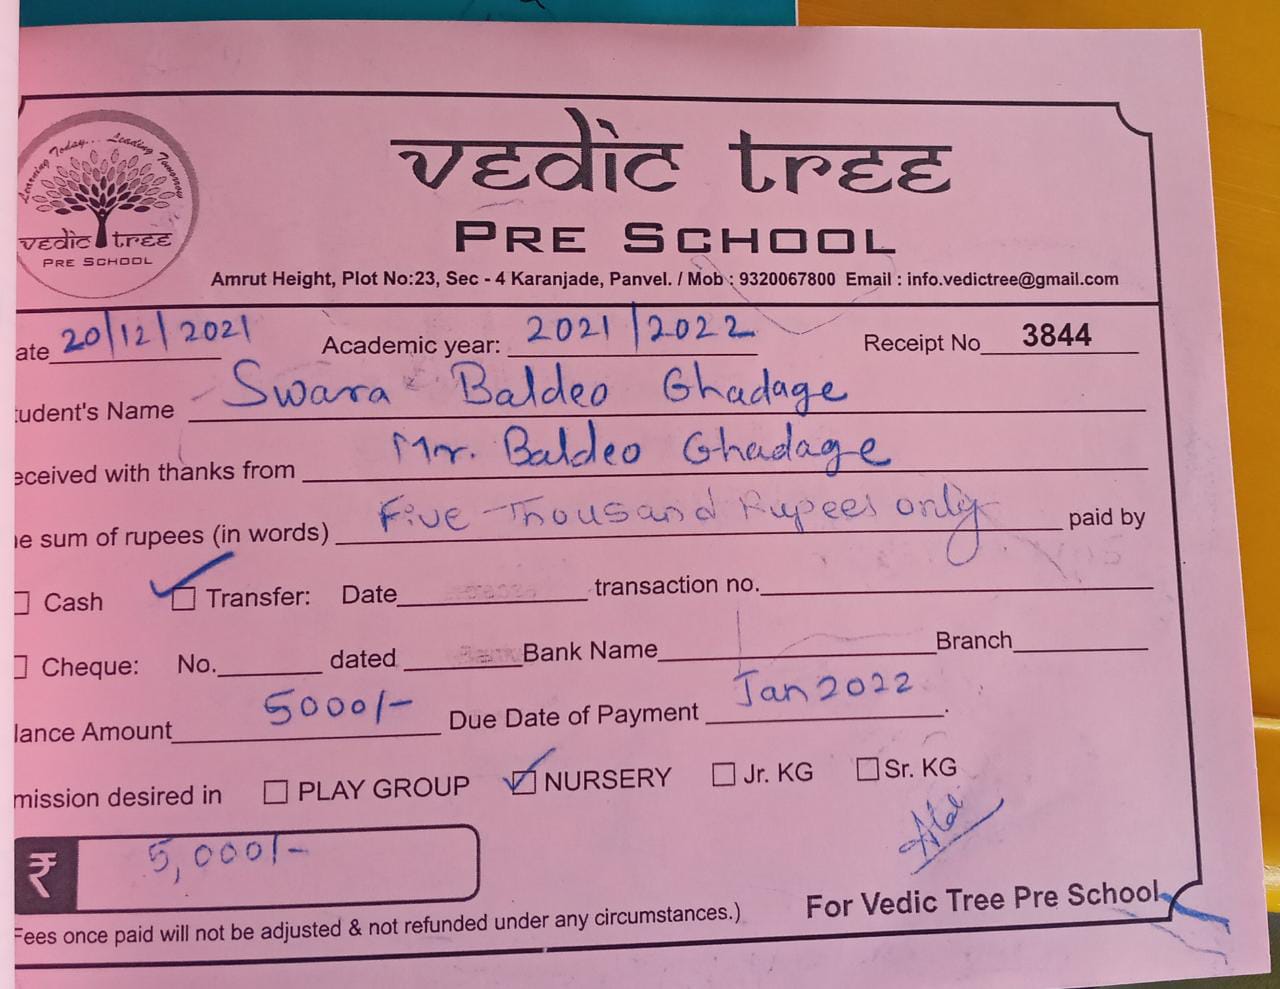 Learning Today... Leading Tomorrow
vedic tree
PRE SCHOOL
vedic tree
PRE SCHOOL
Amrut Height, Plot No:23, Sec - 4 Karanjade, Panvel. / Mob : 9320067800 Email : info.vedictree@gmail.com
ate 20/12/2021 Academic year: 2021/2022 Receipt No 3844
tudent's Name Swara Baldeo Ghadage
eceived with thanks from Mr. Baldeo Ghadage
e sum of rupees (in words) Five Thousand Rupees only paid by
Cash Transfer: Date transaction no.
Cheque: No. dated Bank Name Branch
lance Amount 5000/- Due Date of Payment Jan 2022.
mission desired in PLAY GROUP NURSERY Jr. KG Sr. KG
₹ 5,000/-
For Vedic Tree Pre School
Fees once paid will not be adjusted & not refunded under any circumstances.)